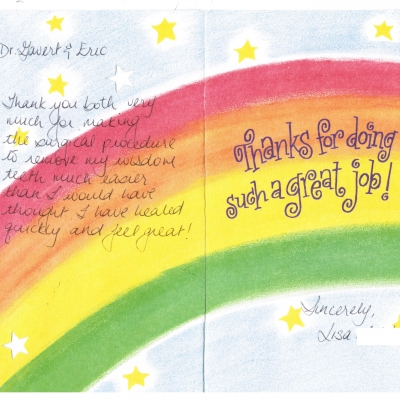 Dr. Gavert & Eric
Thank you both very
much for making
the surgical procedure
to remove my wisdom
teeth much easier
than I would have
thought. I have healed
quickly and feel great!
Thanks for doing
such a great job!
Sincerely,
Lisa